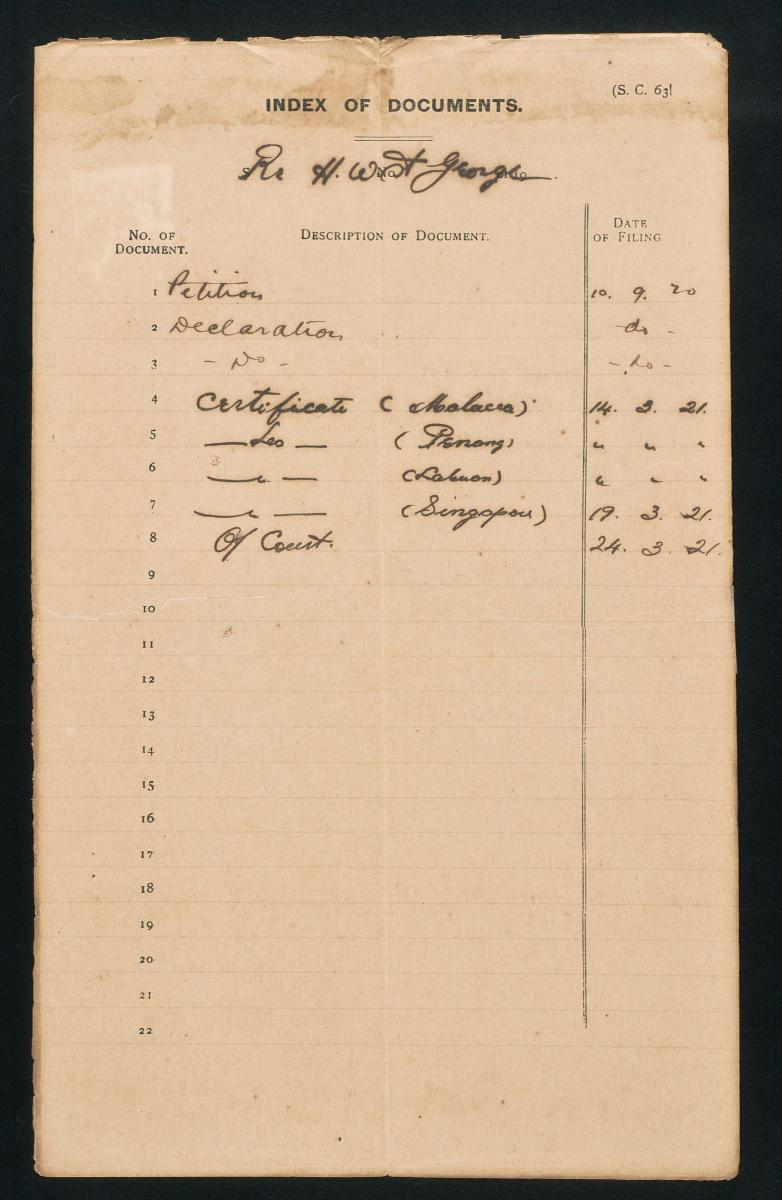 (S. C. 63)
INDEX OF DOCUMENTS.
Re H. W. St George
No. of Document. Description of Document. Date of Filing
1 Petition 10. 9. 20
2 Declaration - do -
3 - Do - - do -
4 Certificate (Malacca) 14. 3. 21.
5 — do — (Penang) " " "
6 — " — (Labuan) " " "
7 — " — (Singapore) 19. 3. 21.
8 O/ Court. 24. 3. 21.
9
10
11
12
13
14
15
16
17
18
19
20
21
22